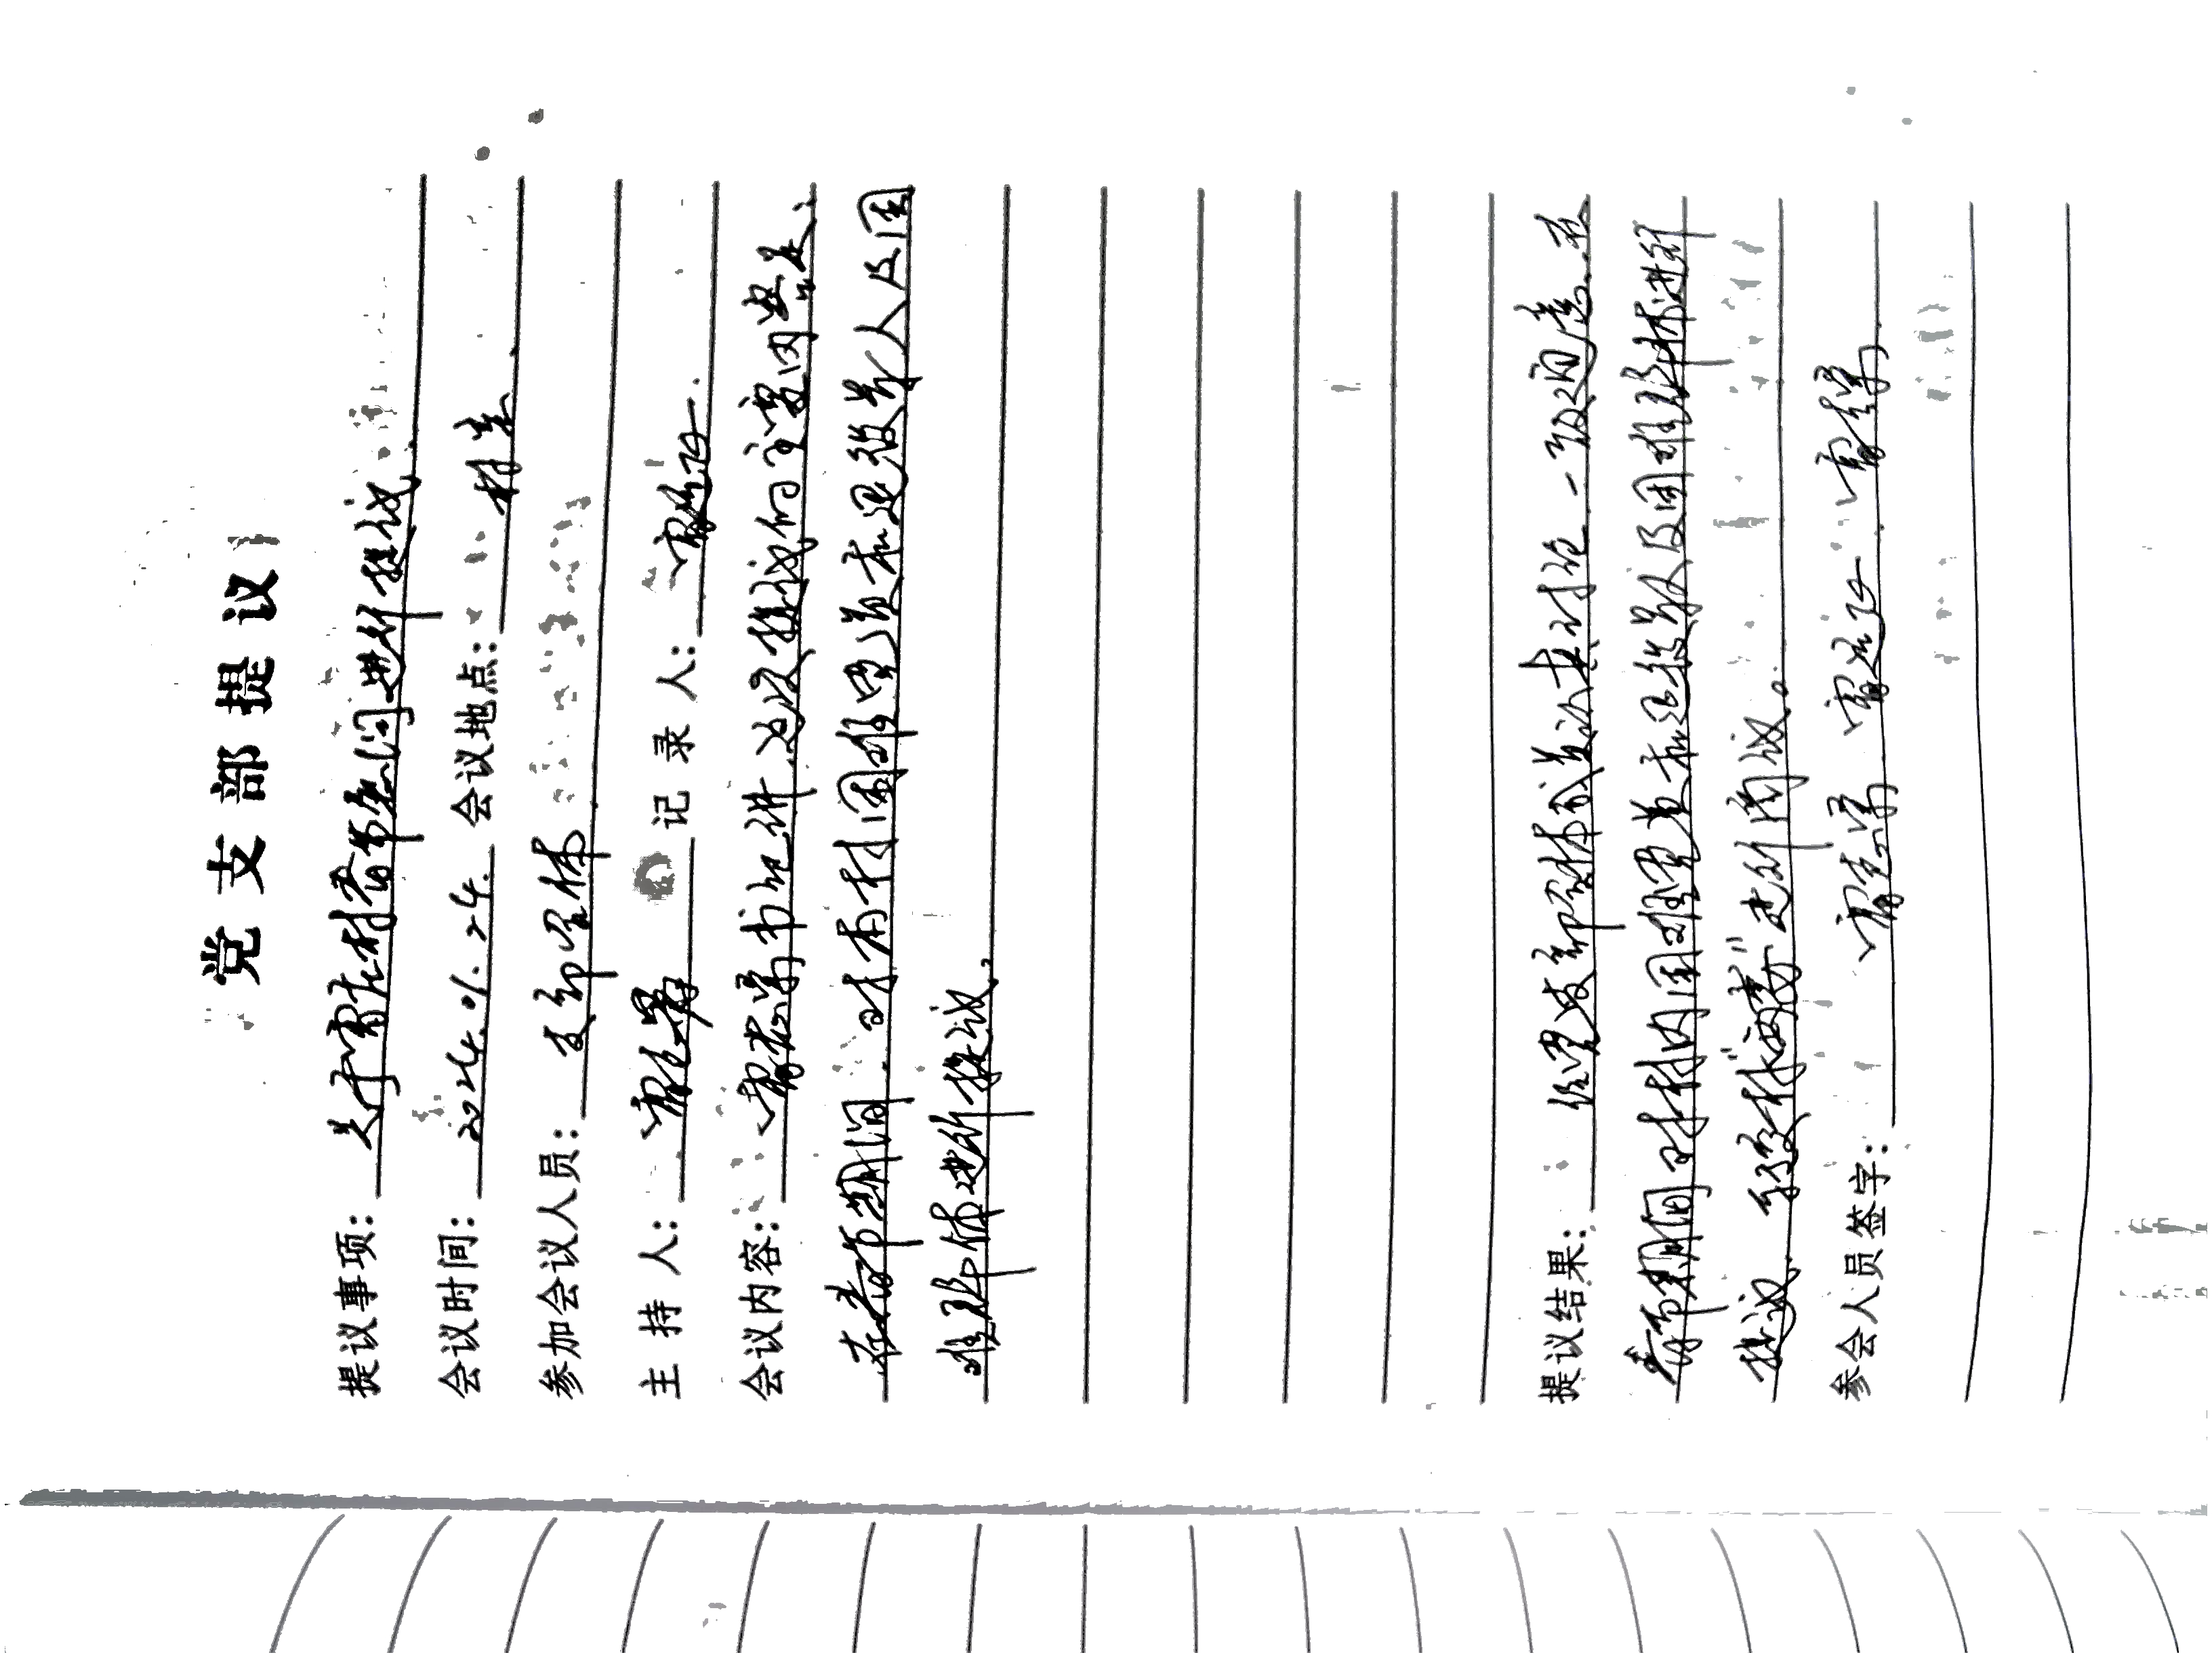 党支部提议
提议事项: 关于雷庄村春节慰问进行提议.
会议时间: 2024.01.24. 会议地点: 村室.
参加会议人员: 支部全体
主持人: 雷志 记录人: 雷运
会议内容: 雷志书记讲.这次提议的主要内容是:
在春节期间.对本村困难党员和退役军人及困
难群体进行提议.
提议结果: 经党支部全体成员认真讨论.一致同意.在
春节期间对村内困难党员和退役军人及困难群体进行
提议.转交村"两委"进行商议。
参会人员签字: 雷志 雷运 雷